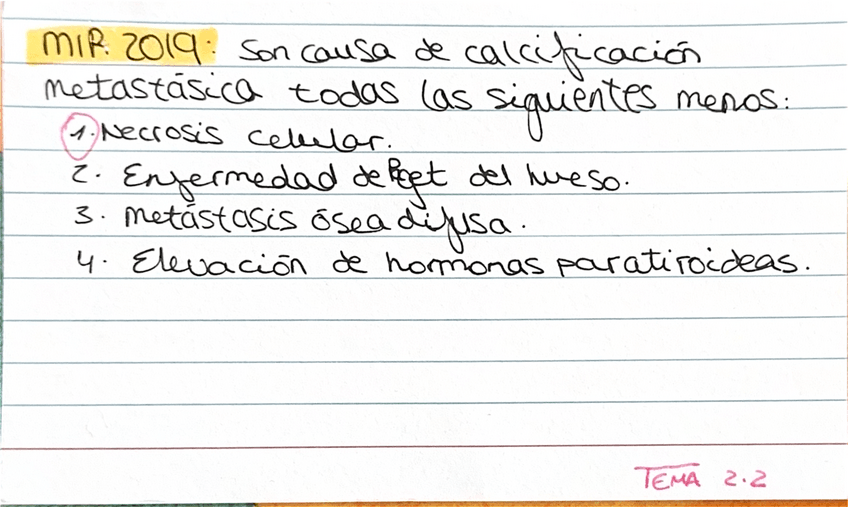 MIR 2019: Son causa de calcificación
metastásica todas las siguientes menos:
1. Necrosis celular.
2. Enfermedad de Paget del hueso.
3. Metástasis ósea difusa.
4. Elevación de hormonas paratiroideas.
TEMA 2.2